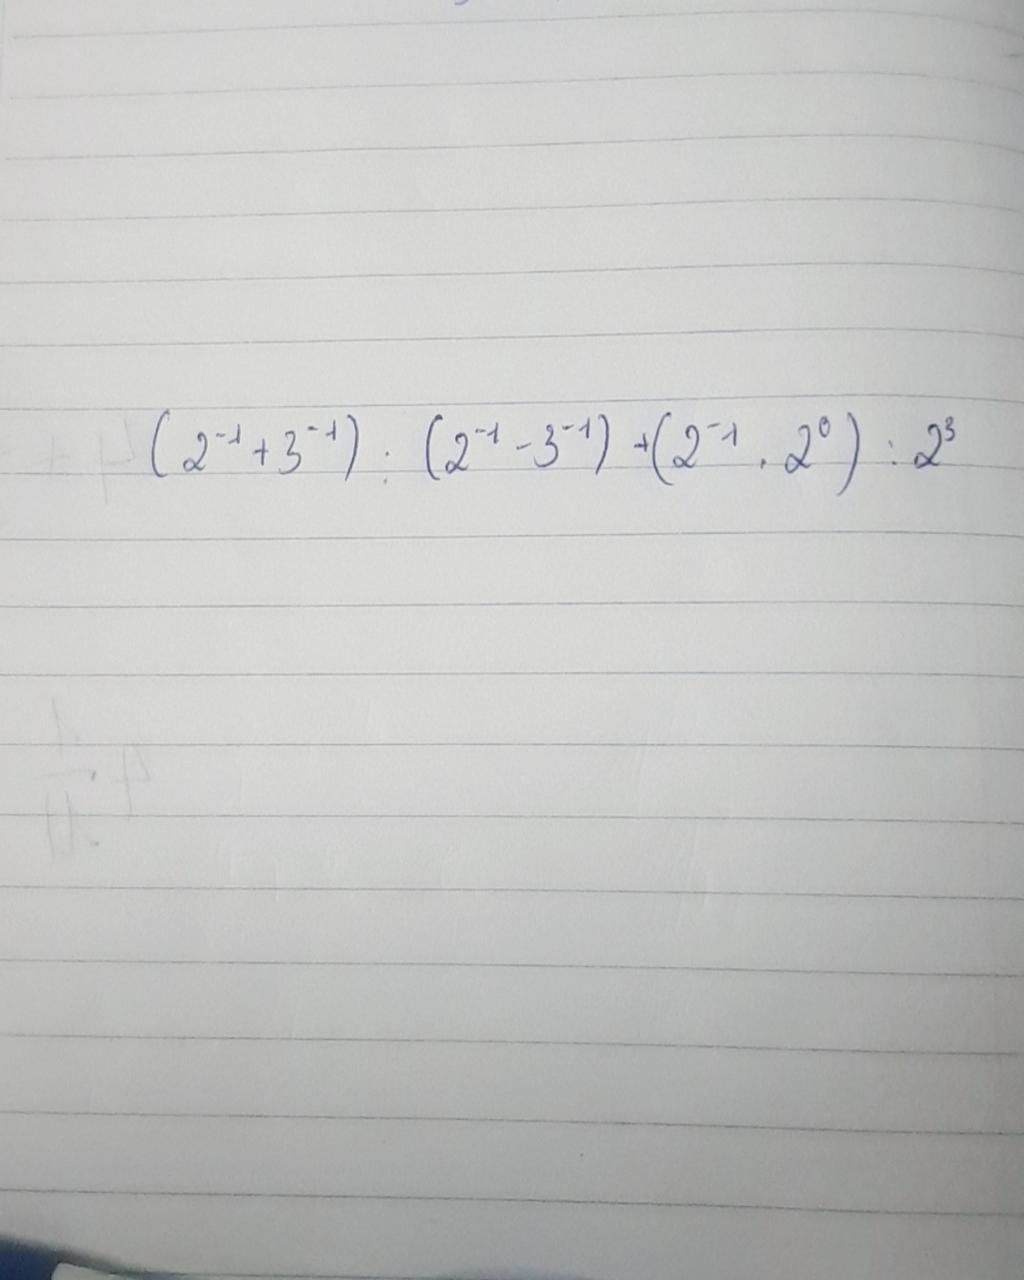 (2⁻¹ + 3⁻¹) : (2⁻¹ - 3⁻¹) + (2⁻¹ . 2⁰) : 2³